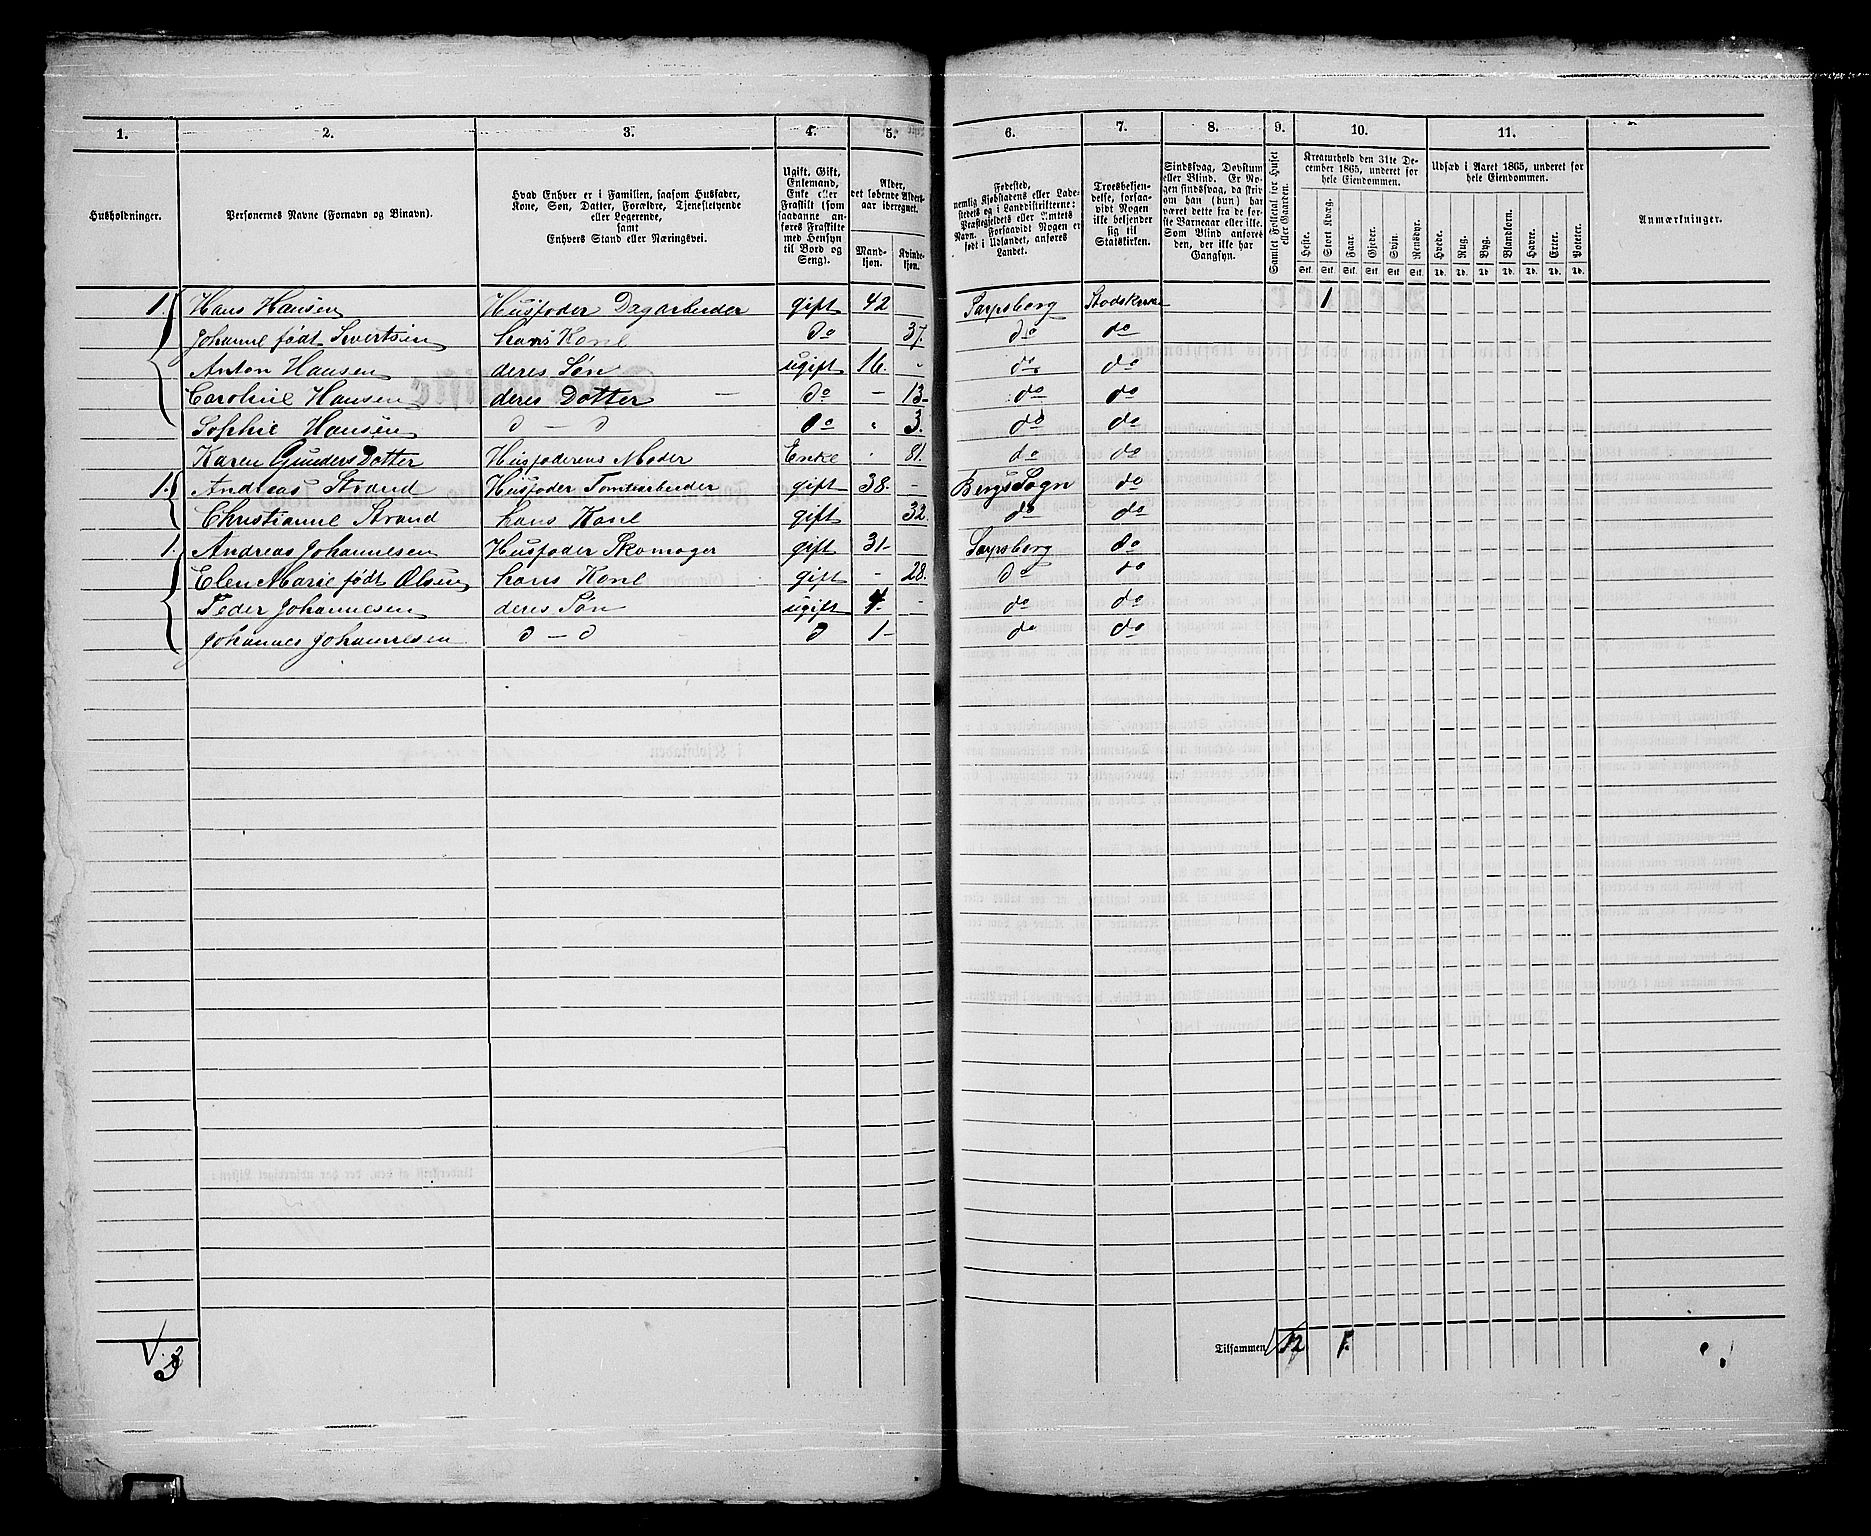 1. 2. 3. 4. 5. 6. 7. 8. 9. 10. 11.
Husholdninger.
Personernes Navne (Fornavn og Binavn).
Hvad Enhver er i Familien, saasom Husfader, Kone, Søn, Datter, Forældre, Tjenestetyende eller Logerende, samt Enhvers Stand eller Næringsvei.
Ugift, Gift, Enkemand, Enke eller Fraskilt (som saadanne anføres Fraskilte med Hensyn til Bord og Seng).
Alder, det løbende Alders-aar iberegnet.
Mandkjøn. Kvindekjøn.
Fødested, nemlig Kjøbstadens eller Ladestedets og i Landdistrikterne: Præstegjeldets eller Amtets Navn. Forsaavidt Nogen er født i Udlandet, anføres Landet.
Troesbekjendelse, forsaavidt Nogen ikke bekjender sig til Statskirken.
Sindssvag, Døvstum eller Blind. Er Nogen sindssvag, da skrives om han (hun) har været dette fra de første Barneaar eller ille. Som Blind anføres den, der ikke har Gangsyn.
Samlet Folketal for Huset eller Gaarden.
Kreaturhold den 31te December 1865, underet for hele Eiendommen.
Heste. Stort Kvæg. Faar. Gjeder. Svin. Rensdyr.
Stk. Stk. Stk. Stk. Stk. Stk.
Udsæd i Aaret 1865, underet for hele Eiendommen.
Hvede. Rug. Byg. Blandkorn. Havre. Erter. Poteter.
Td. Td. Td. Td. Td. Td. Td.
Anmærkninger.
1. Hans Hansen Husfader Dagarbeider gift 42 Sarpsborg Stadskirke 1
Johanne født Sivertsen hans Kone do 37. do do
Anton Hansen deres Søn ugift 16. - do do
Caroline Hansen deres Datter do - 13- do do
Sophie Hansen d - d do " 3. do do
Karen Gunders Datter Husfaderens Moder Enke . 81. do do
1. Andreas Strand Husfader Tomtearbeider gift 38. - Bergs Sogn do
Christianne Strand hans Kone gift 32. do do
1. Andreas Johannesen Husfader Skomager gift 31- Sarpsborg do
Elen Marie født Olsen hans Kone gift - 28. do do
Peder Johannesen deres Søn ugift 4. - do do
Johannes Johannesen d - d d 1- do do
3
Tilsammen 12 1.